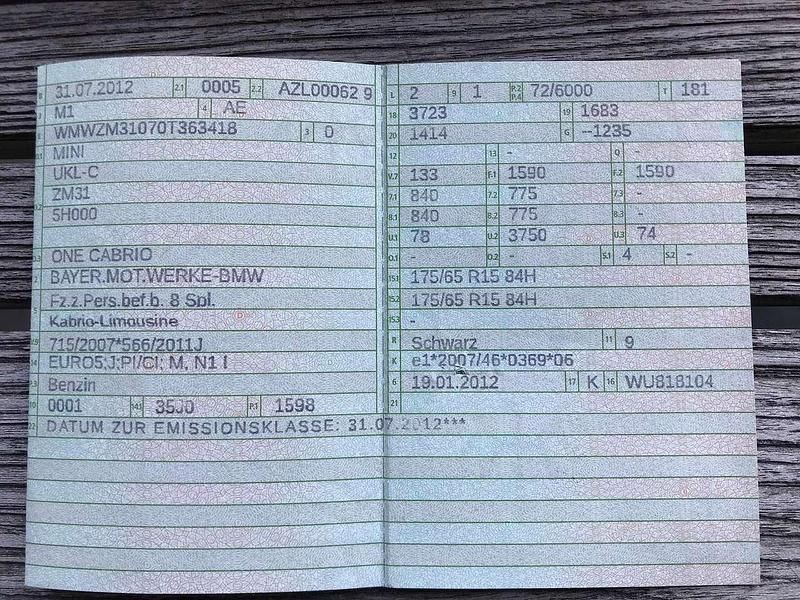 B 31.07.2012 2.1 0005 2.2 AZL00062 9
J M1 4 AE
E WMWZM31070T363418 3 0
D.1 MINI
UKL-C
D.2 ZM31
5H000
D.3 ONE CABRIO
2 BAYER.MOT.WERKE-BMW
5 Fz.z.Pers.bef.b. 8 Spl.
Kabrio-Limousine
V.9 715/2007*566/2011J
14 EURO5;J;PI/CI; M, N1 I
P.3 Benzin
10 0001 14.1 3500 P.1 1598
22 DATUM ZUR EMISSIONSKLASSE: 31.07.2012***
L 2 9 1 P.2 P.4 72/6000 T 181
18 3723 19 1683
20 1414 G --1235
12 13 - Q -
V.7 133 F.1 1590 F.2 1590
7.1 840 7.2 775 7.3 -
8.1 840 8.2 775 8.3 -
U.1 78 U.2 3750 U.3 74
O.1 - O.2 - S.1 4 S.2 -
15.1 175/65 R15 84H
15.2 175/65 R15 84H
15.3 -
R Schwarz 11 9
K e1*2007/46*0369*06
6 19.01.2012 17 K 16 WU818104
21